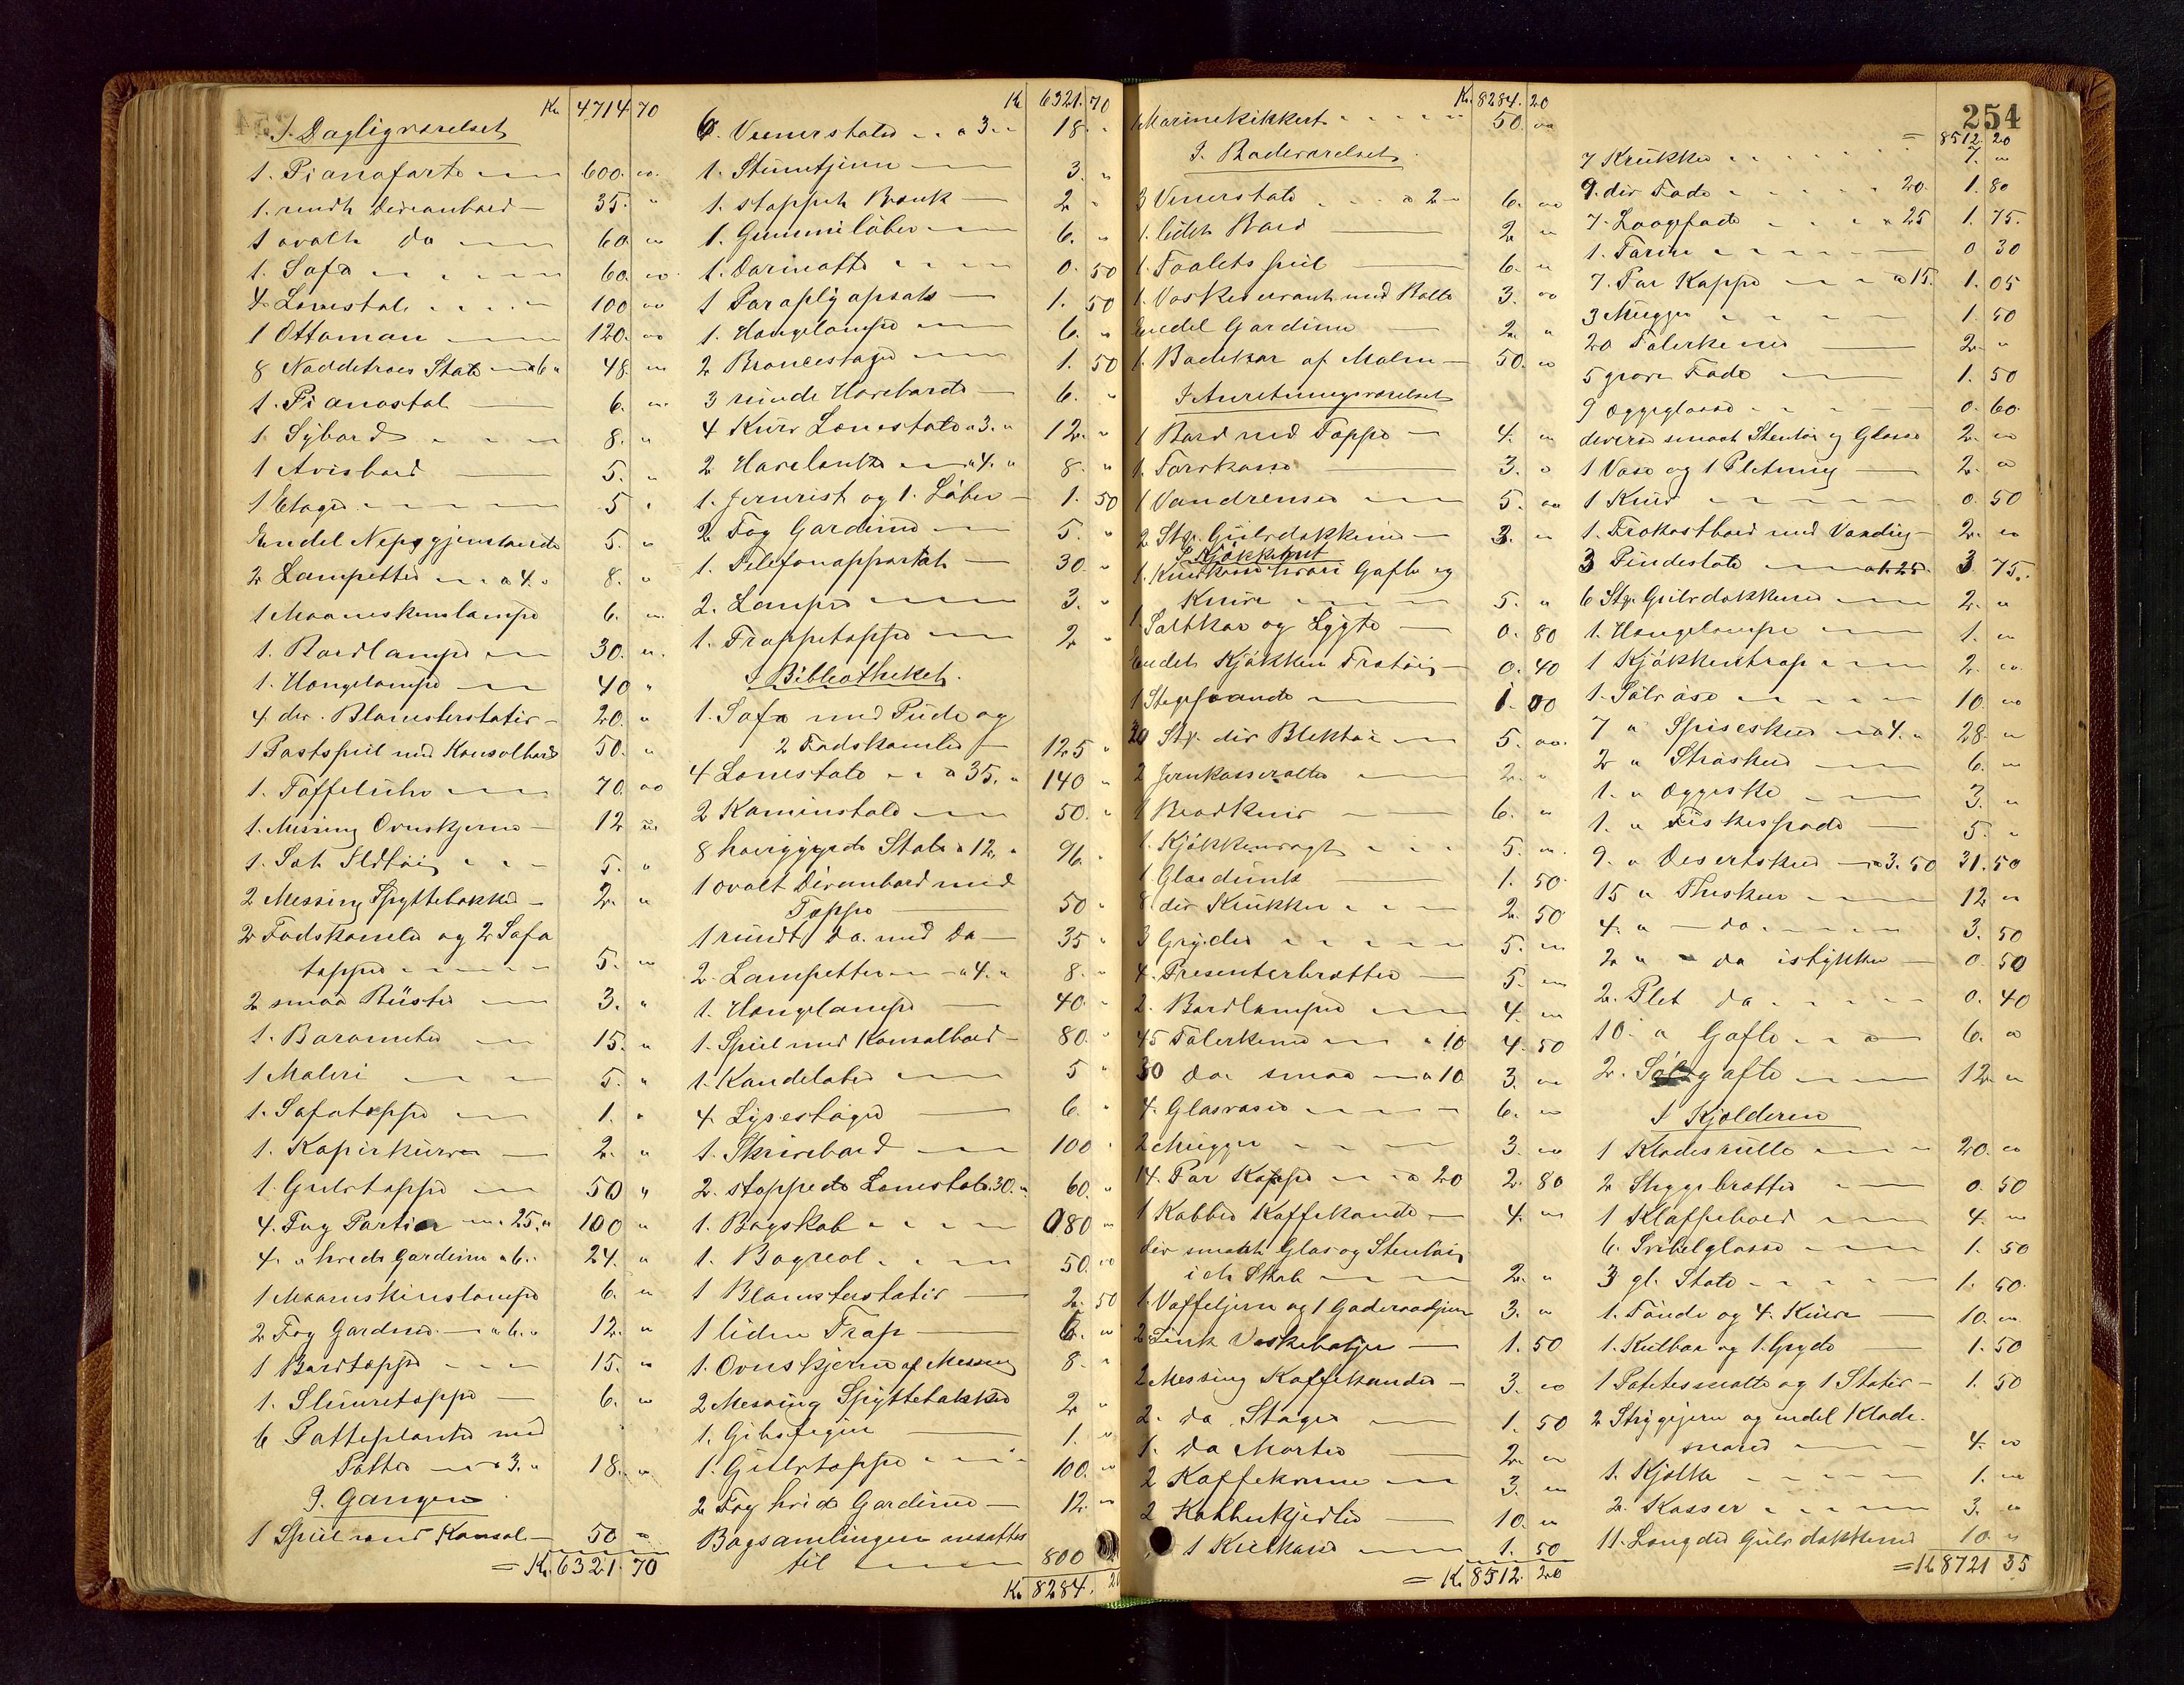 Kr 4714 70
I. Dagligværelset
1. Pianoforte 600. 00.
1. rundt Divanbord 35. "
1 ovalt do 60 "
1. Sofa 60. 00.
4. Lænestole 100 00
1 Ottoman 120. 00
8 Nøddetræes Stole a 6 " 48. "
1. Pianostol 6. "
1. Sybord 8. "
1 Avisbord 5. "
1 Etage 5 "
Endel Nipsgjenstande 5. "
2 Lampetter a 4. " 8. "
1 Maaneskinslampe 6. "
1. Bordlampe 30. "
1. Hængelampe 40 "
4. div. Blomsterstativ 20. "
1 Postspeil med Konsolbord 50. "
1. Taffeluhr 70. 00
1. Messing Ovnskjerm 12 "
1. Sæt Ildtøi 5. "
2 Messing Spyttebakker 2. "
2 Fodskamler og 2 Sofa
tepper 5. "
2 smaa Büster 3. "
1. Barometer 15. "
1 Maleri 5. "
1. Sofateppe 1. "
1. Papirkurv 2. "
1. Gulvteppe 50 "
4. Fag Portier a 25. " 100 "
4. " hvide Gardiner a 6. " 24. "
1 Maaneskinslampe 6. "
2 Fag Gardiner a 6. " 12. "
1 Bordteppe 15. "
1. Slumreteppe 6. "
6 Potteplanter med
Potter a 3. " 18. "
I. Gangen
1 Speil med Konsol 50 "
= Kr. 6321. 70
Kr 6321. 70
6. Vinerstole a 3. " 18. "
1. Stumtjener 3. "
1. stoppet Bænk 2 "
1. Gummiløber 6. "
1. Dørmatte 0. 50
1 Paraplyopsats 1. 50
1. Hængelampe 6. "
2 Broncestager 1. 50
3 runde Haveborde 6. "
4 Kurv Lænestole a 3. " 12. "
2 Havebænke a 4. " 8. "
1. Jernrist og 1. Løber 1. 50
2 Fag Gardiner 5. "
1. Telefonapparat 30. "
2. Lamper 3. "
1. Trappeteppe 2 "
I Bibliotheket.
1. Sofa med Pude og
2 Fodskamler 125 "
4 Lænestole a 35. " 140 "
2 Kaminstole 50. "
8 høiryggede Stole a 12. " 96. "
1 ovalt Divanbord med
Teppe 50 "
1 rundt Do. med Do 35 "
2. Lampetter a 4. " 8. "
1. Hængelampe 40. "
1. Speil med Konsolbord 80. "
1. Kandelaber 5 "
4 Lysestager 6. "
1. Skrivebord 100 "
2. stoppede Lænestole 30. " 60. "
1. Bogskab 180 "
1. Bogreol 50. 00
1 Blomsterstativ 2. 50
1 liden Trap 6. "
1. Ovnskjerm af Messing 8. "
2 Messing Spyttebakker 2 "
1. Gibsfigur 1. "
1. Gulvteppe 100. "
2 Fag hvide Gardiner 12. "
Bogsamlingen ansættes
til 800
Kr 8284. 20
Kr. 8284. 20
1 Marinekikkert 50. 00
I. Badeværelset.
3 Vinerstole a 2 " 6. 00
1. lidet Bord 2 "
1. Toaletspeil 6. "
1. Vaskeservant med Balle 3. 00
Endel Gardiner 2. "
1. Badekar af Malm 50. 00
I Anretningsværelset
1 Bord med Teppe 4. "
1. Tørkasse 3. "
1 Vandrenser 5. 00
2 Stk. Gulvdækkener 3. "
I. Kjøkkenet
1. Knivkasse hvori Gafle og
Knive 5. "
1. Saltkar og Lygte 0. 80
Endel Kjøkken Trætøi 0. 40
1 Stegepande 1. 00
20 Stk. div Bliktøi 5. 00.
2 Jernkasseroller 2. "
1 Brødkniv 6. "
1. Kjøkkenvægt 5. "
1. Glasdunk 1. 50.
8. div Krukker 2. 50
3 Gryder 5. "
4. Presenterbretter 5. "
2. Bordlamper 4. "
45 Talerkener a 10 4. 50
30 do. smaa a 10 3. "
4. Glasvaser 6. 00
2 Mugger 3. 00
14. Par Kopper a 20 2. 80
1 Kobber Kaffekande 4. "
div smaat Glas og Stentøi
i et Skab 2. "
1. Vaffeljern og 1 Goderaadjern 3. "
2 Sink Vaskebaljer 1. 50
2 Messing Kaffekander 3. 00
2. do. Stager 1. 50
1. do Morter 2. "
2 Kaffekverne 3. "
2 Kobberkjedler 10. "
1 Kulkasse 1. 50
= Kr. 8512. 20
254
= 8512. 20
7 Krukker 7. "
9. div Fade 20. 1. 80
7. Laagefade a 25 1. 75.
1. Terin 0 30
7. Par Kopper a 15. 1. 05
3 Mugger 1. 50
20 Talerkener 2. "
5 grove Fade 1. 50
9 Æggeglasse 0. 60.
diverse smaat Stentøi og Glasse 2. 00
1 Vase og 1 Pletmug 2. "
1 Kurv 0. 50
1. Frokostbord med Voxdug 2. 00
3 Pindestole a 1.25 3 75.
6 Stk. Gulvdækkener 2. "
1. Hængelampe 1. "
1 Kjøkkentrap 2. 00
1. Sølvøse 10. 00
7 " Spiseskeer a 4. " 28. "
2 " Strøskeer 6. "
1. " Æggeske 3. "
1. " Fiskespade 5. "
9. " Desertskeer a 3. 50 31. 50
15 " Theskeer 12 "
4. " do. 3. 50
2 " do istykker 0. 50
2. Plet do 0. 40
10. " Gafle 6. "
2. Sølvgafle 12. "
I Kjælderen
1 Klæderulle 20. 00
2 Strygebretter 0. 50
1 Klaffebord 4. "
6. Svibelglasse 1. 50
3 gl. Stole 1. 50.
1. Tønde og 4. Kurve 10. "
1. Kulbox og 1. Gryde 1. 50
1 Potetesmatte og 1 Stativ 1. 50
2 Strygejern og endel Klæde-
snorer 4. 00
1. Kjælke 1. "
2. Kasser 3. "
11. Længder Gulvdækkener 10. "
= Kr 8721 35